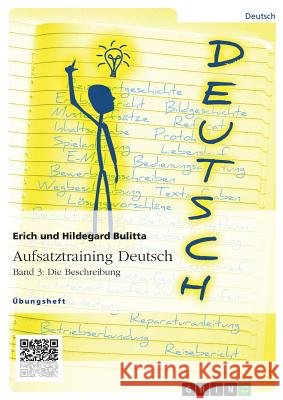 Deutsch
DEUTSCH
Reizwortgeschichte
Bildgeschichte
Protokoll
Spielanleitung
Lebenslauf
E-Mail
Bedienungsanleitung
Bewerbungsschreiben
Wegbeschreibung
Lösungsvorschläge
Erich und Hildegard Bulitta
Aufsatztraining Deutsch
Band 3: Die Beschreibung
Übungsheft
Reparaturanleitung
Betriebserkundung
Reisebericht
GRIN